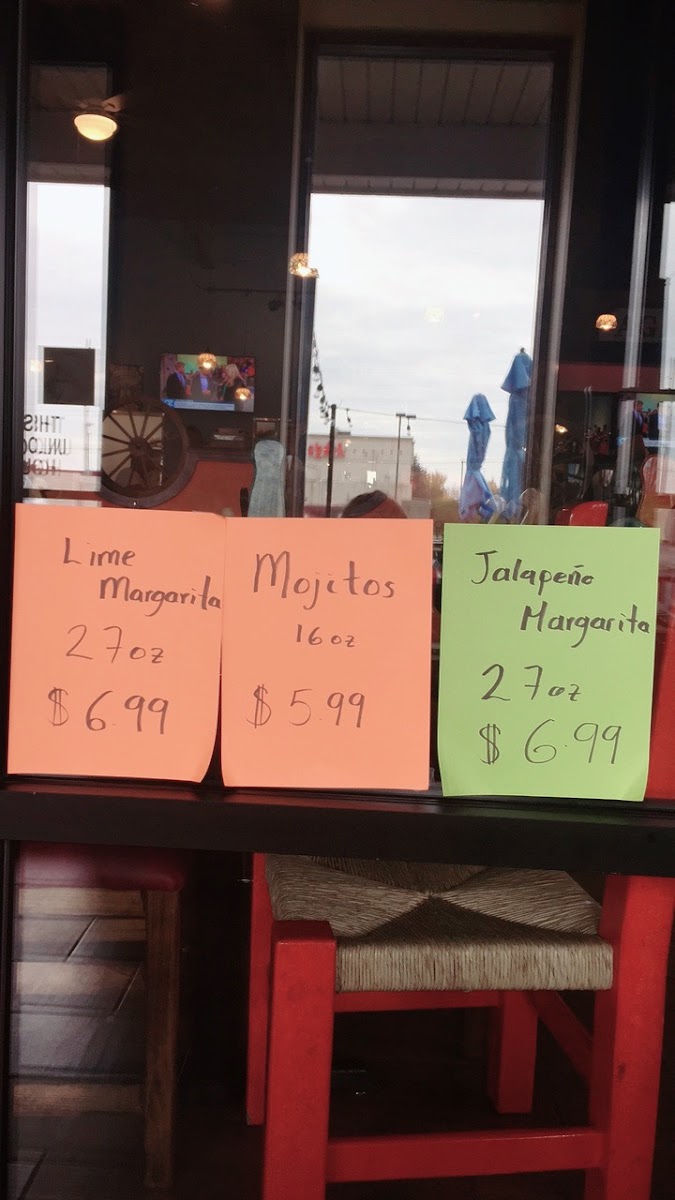 Lime
Margarita
27oz
$ 6.99
Mojitos
16oz
$ 5.99
Jalapeño
Margarita
27oz
$ 6.99
THIS